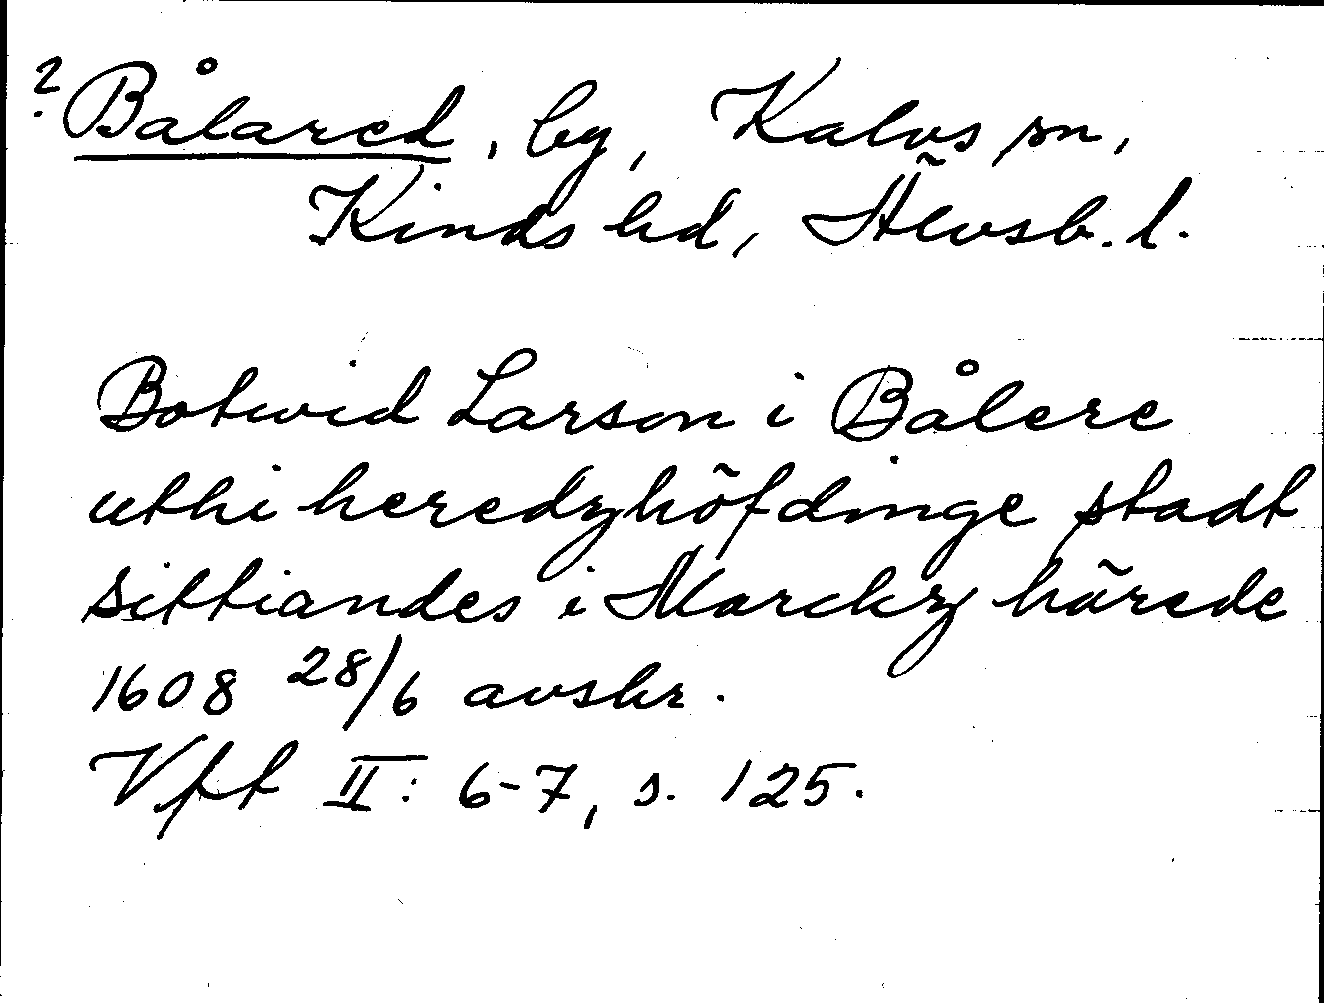 ? Bålared, by, Kalvs sn,
Kinds hd, Älvsb. l.
Botwid Larson i Bålere
uthi heredzhöfdinge stadt
sittiandes i Marckz härede
1608 28/6 avskr.
Vft II: 6-7, s. 125.